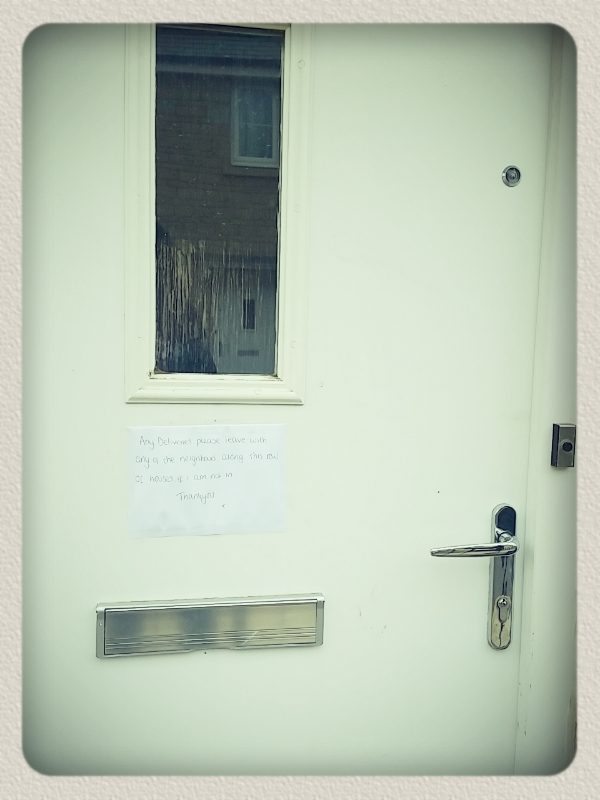 Any Deliveries please leave with
any of the neighbours along this row
of houses if i am not in
Thankyou